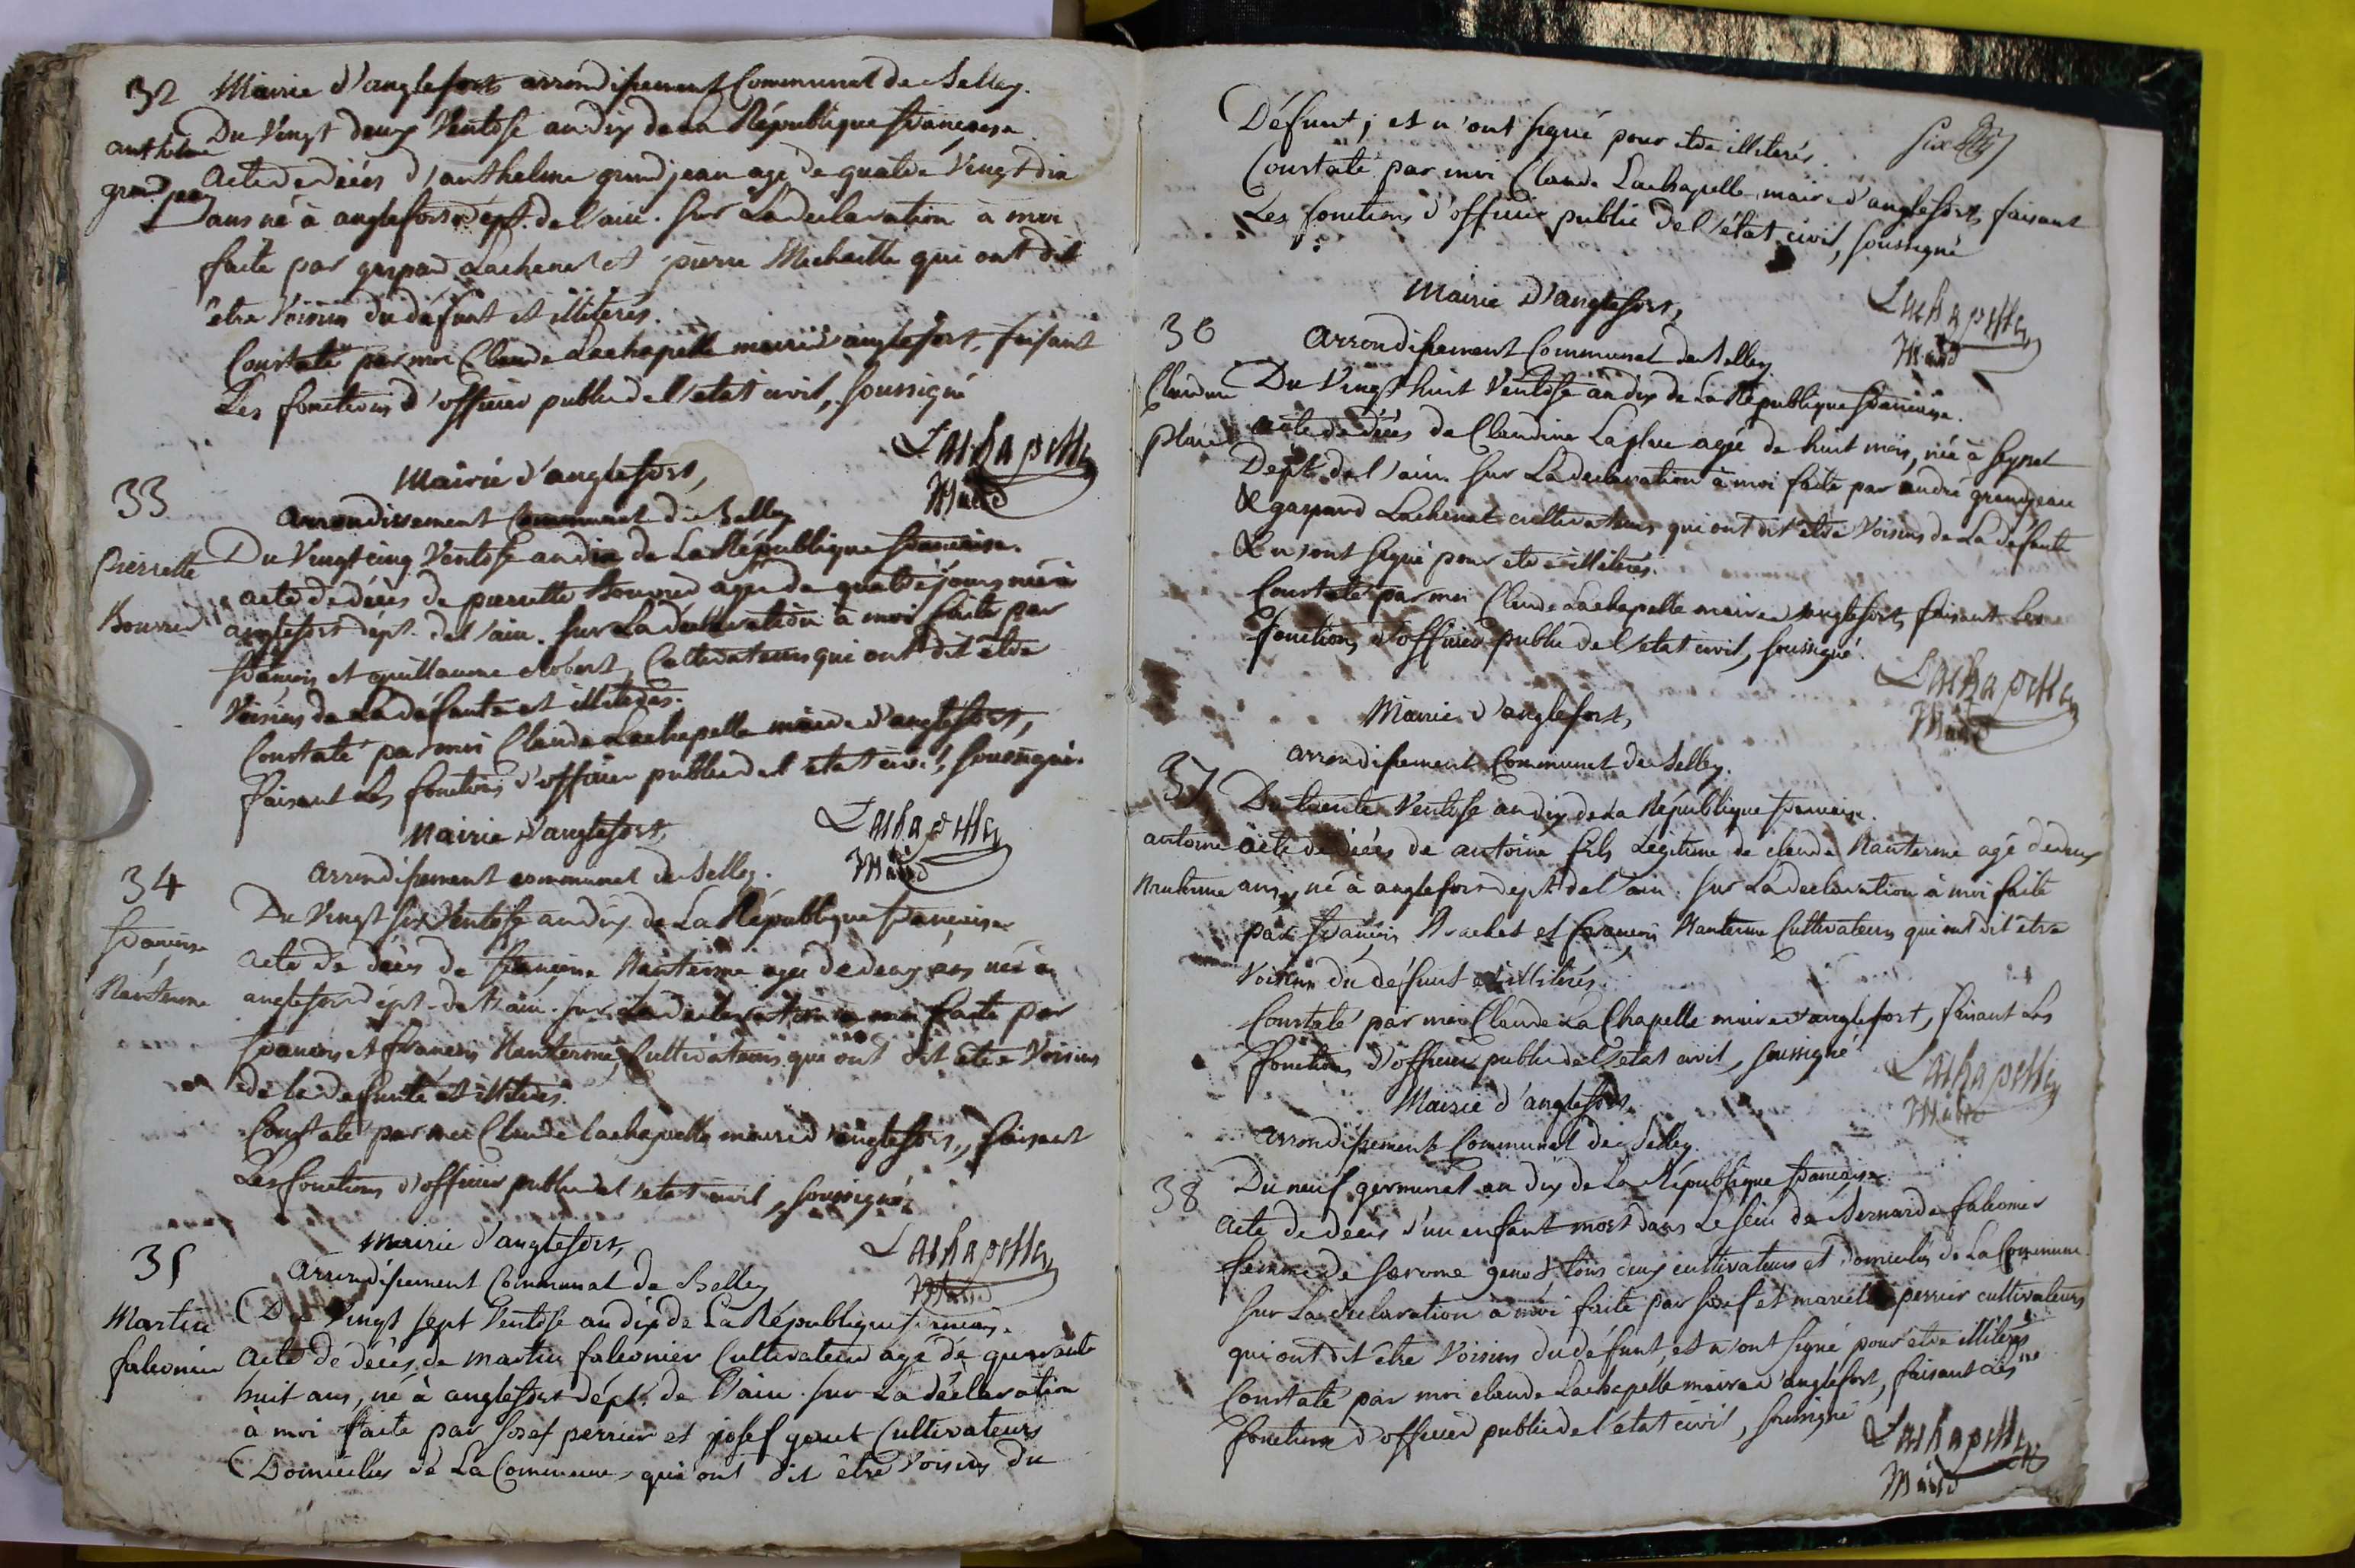 32
Mairie d'anglefort arrondissement Communal de Belley.
Du Vingt deux Ventose an dix de la République francaise.
anthelme
grandjean
Acte de décès d'anthelme grandjean agé de quatre Vingt dix
ans né à anglefort dépt. de l'ain. sur La declaration à moi
faite par gaspard Lachenal et pierre Michaille qui ont dit
être Voisins du défunt et illiterés.
Constaté par moi Claude Lachapelle maire d'anglefort, faisant
Les fonctions d'officier public de l'etat civil, soussigné
Lachapelle
Maire
33
Mairie d'anglefort,
arrondissement Communal de Belley
Pierrette
Bourred
Du Vingt cinq Ventose an dix de La République francaise.
acte de décès de pierrette agée de quatre jours née à
anglefort dépt. de l'ain. sur La déclaration à moi faite par
francois et guillaume Robert, Cultivateurs qui ont dit etre
Voisins de La défunte et illiterés.
Constaté par moi Claude Lachapelle maire d'anglefort,
faisant Les fonctions d'officier public de l'etat civil, soussigné.
Lachapelle
Maire
34
Mairie d'anglefort,
arrondissement communal de Belley.
francoise
Nanterme
Du Vingt six Ventose an dix de La République francaise
acte de décès de francoise Nanterme agée de deux ans née à
anglefort dépt. de l'ain. sur La declaration à moi faite par
francois et francois Nanterme, Cultivateurs qui ont dit etre Voisins
de la defunte et illiterés.
Constaté par moi Claude Lachapelle maire d'anglefort, faisant
Les fonctions d'officier public de l'etat civil, soussigné.
Lachapelle
Maire
35
Mairie d'anglefort,
arrondissement Communal de Belley
Martin
falconier
Du Vingt sept Ventose an dix de La République francaise.
Acte de décès de martin falconier Cultivateur agé de quarante
huit ans, né à anglefort dépt. de l'ain. sur La déclaration
à moi faite par Josef perrier et josef genet Cultivateurs
Domiciliés de La Commune, qui ont dit être Voisins du
Défunt; et n'ont signé pour etre illiterés.
Constaté par moi Claude Lachapelle maire d'anglefort, faisant
Les fonctions d'officier public de l'état civil, soussigné
six
Lachapelle
Maire
36
Mairie d'anglefort,
arrondissement Communal de Belley
Claudine
place
Du Vingt huit Ventose an dix de La République francaise.
acte de décès de Claudine Laplace agée de huit mois, née à Seyssel
Dépt. de l'ain. sur La declaration à moi faite par andré grandjean
& gaspard Lachenal cultivateurs qui ont dit etre Voisins de La defunte
& n'ont signé pour etre illiterés.
Constaté par moi Claude Lachapelle maire d'anglefort, faisant Les
fonctions d'officier public de l'etat civil, soussigné.
Lachapelle
Maire
Mairie d'anglefort,
arrondissement Communal de Belley.
37
antoine
Nanterme
Du trente Ventose an dix de La République francaise.
acte de décès de antoine fils Légitime de claude Nanterme agé de deux
ans, né à anglefort dept. de l'ain. sur La declaration à moi faite
par francois Brachet et francois Nanterme Cultivateurs qui ont dit être
Voisins du défunt et illiterés.
Constaté par moi Claude La Chapelle maire d'anglefort, faisant Les
fonctions d'officier public de l'etat civil, soussigné
Lachapelle
Maire
Mairie d'anglefort.
arrondissement Communal de Belley.
38
Du neuf germinal an dix de La République francaise.
Acte de decès d'un enfant mort dans Le sein de Bernarde falconier
femme de Jerome genet tous deux cultivateurs et Domiciliés de La Commune
sur La declaration à moi faite par Josef et perrier cultivateurs
qui ont dit être Voisins du défunt, et n'ont signé pour etre illiterés
Constaté par moi claude Lachapelle maire d'anglefort, faisant Les
fonctions d'officier public de l'etat civil, soussigné
Lachapelle
Maire